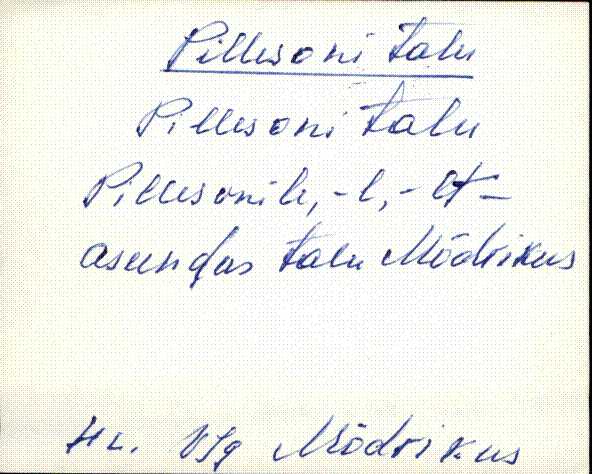 Pillesoni talu
Pillesoni talu
Pillesonile, -l, -lt –
asundas talu Mõdrikus
HL. VJg Mõdrikus